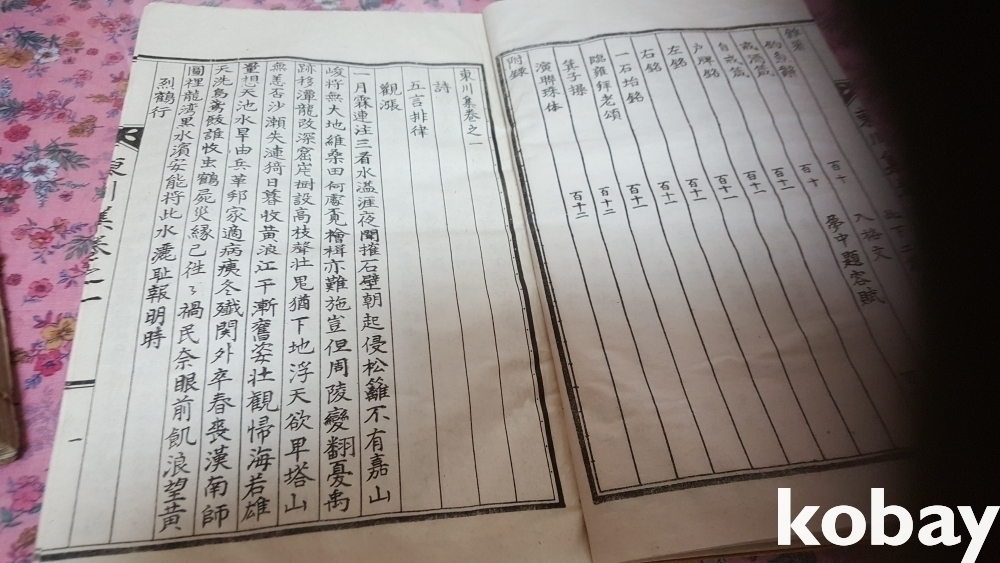 雜著
自戒箴 百十一
戶牌銘 百十一
左銘 百十一
右銘 百十一
一石坮銘 百十一
臨雍拜老頌 百十二
箕子操 百十二
演聯珠体
附錄
入格文
夢中題客賦
東川集卷之一
詩
五言排律
觀漲
一月霖連注三看水溢涯夜聞摧石壁朝起侵松籬不有嘉山
峻將無大地維桑田何處覓檜楫亦難施豈但周陵變翻憂禹
跡移潭龍改深窟岸樹設高枝聲壯思猶下地浮天欲卑塔山
無恙否沙瀨失漣猗日暮收黃浪江干漸奮姿壯觀帰海若雄
量想天池水旱由兵革邦家適病痍冬殲関外卒春喪漢南師
天洗烏鳶骸誰收虫鶴屍災緣已徃々禍民奈眼前飢浪望黃
圖裡龍湾黑水濱安能將此水灑耻報明時
烈鶴行
東川集卷之一
一
kobay